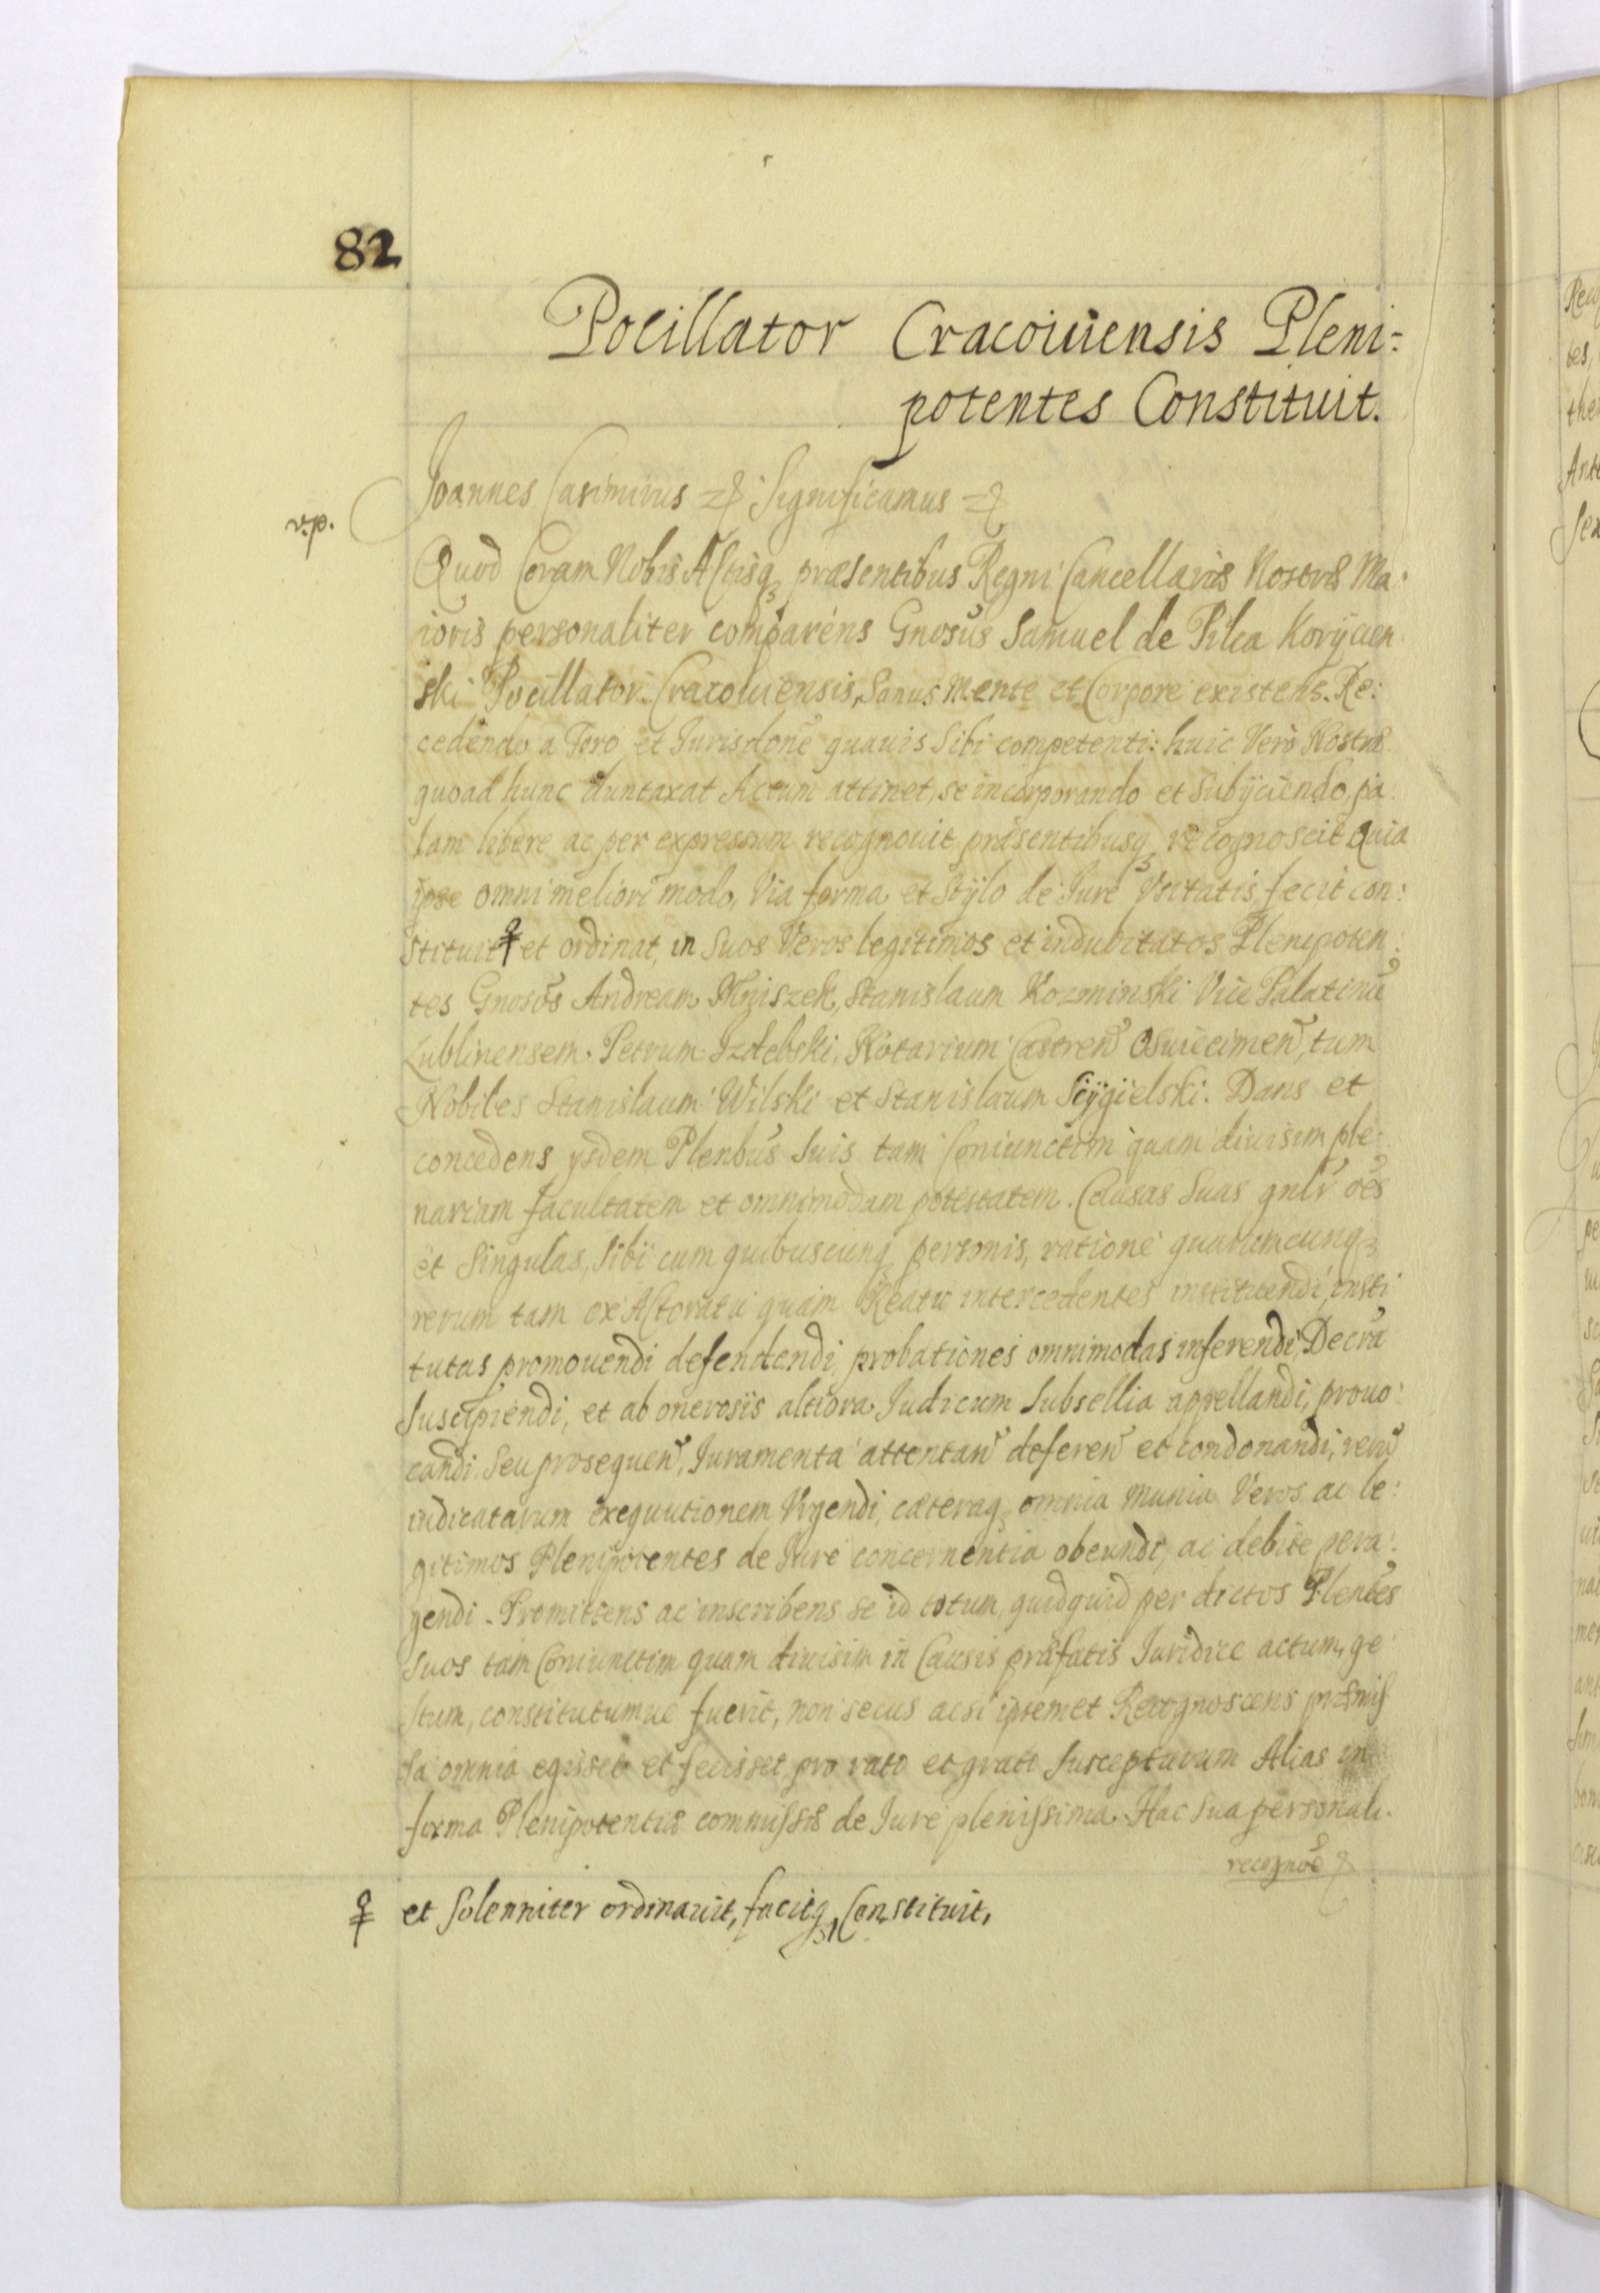 82
Pocillator Cracouiensis Pleni-
potentes Constituit.
Joannes Casimirus Significamus
v.p.
Quod Coram Nobis Actisq3 præsentibus Regni Cancellariæ Nostræ Ma:
ioris personaliter comparens Gnosus Samuel de Pilca Korÿcien
ski Pocillator Cracouiensis, Sanus Mente et Corpore existens. Re:
cedendo a Foro et Jurisdone quauis Sibi competenti: huic Verò Nostræ
quoad hunc duntaxat Actum attinet, se incorporando et Subÿciendo, pa
lam libere ac per expressum recognouit præsentibusq3 recognoscit Quia
ipse omni meliori modo, Via forma et Stÿlo de Jure Vsitatis fecit con:
stituit et ordinat, in Suos Veros legitimos et indubitatos Plenipoten:
tes Gnosos Andream Mniszek, Stanislaum Kozminski Vice Palatinũ
Lublinensem. Petrum Izdebski, Notarium Castren Oswiecimen, tum
Nobiles Stanislaum Wilski et Stanislaum Scÿgielski. Dans et
concedens ysdem Plenbus Suis tam Coniunctim quam diuisim ple:
nariam facultatem et omnimodam potestatem. Causas Suas gnlr oes
et Singulas, Sibi cum quibuscunq3 personis, ratione quarumcunq3
rerum tam ex Actoratu quam Reatu intercedentes instituendi, insti
tutas promouendi defendendi, probationes omnimodas inferendi, Decra
Suscipiendi, et ab onerosis altiora Judicum Subsellia appellandi, prouo:
candi, Seu prosequen, Juramenta attentan deferen et condonandi, reru
iudicatarum exequutionem Vrgendi, cæteraq3 omnia munia Veros ac le:
gitimos Plenipotentes de Jure concernentia obeundi, ac debite pera:
gendi. Promittens ac inscribens se id totum, quidquid per dictos Plentes
Suos tam Coniunctim quam diuisim in Causis præfatis Juridice actum, ge
stum, constitutumue fuerit, non secus acsi ipsemet Recognoscens præmiſ
sa omnia egisset et fecisset pro rato et grato Suscepturum Alias in
forma Plenipotentiæ commissæ de Jure plenissima. Hac Sua personali.
recognoe
et Solenniter ordinauit, facitq3, Constituit,